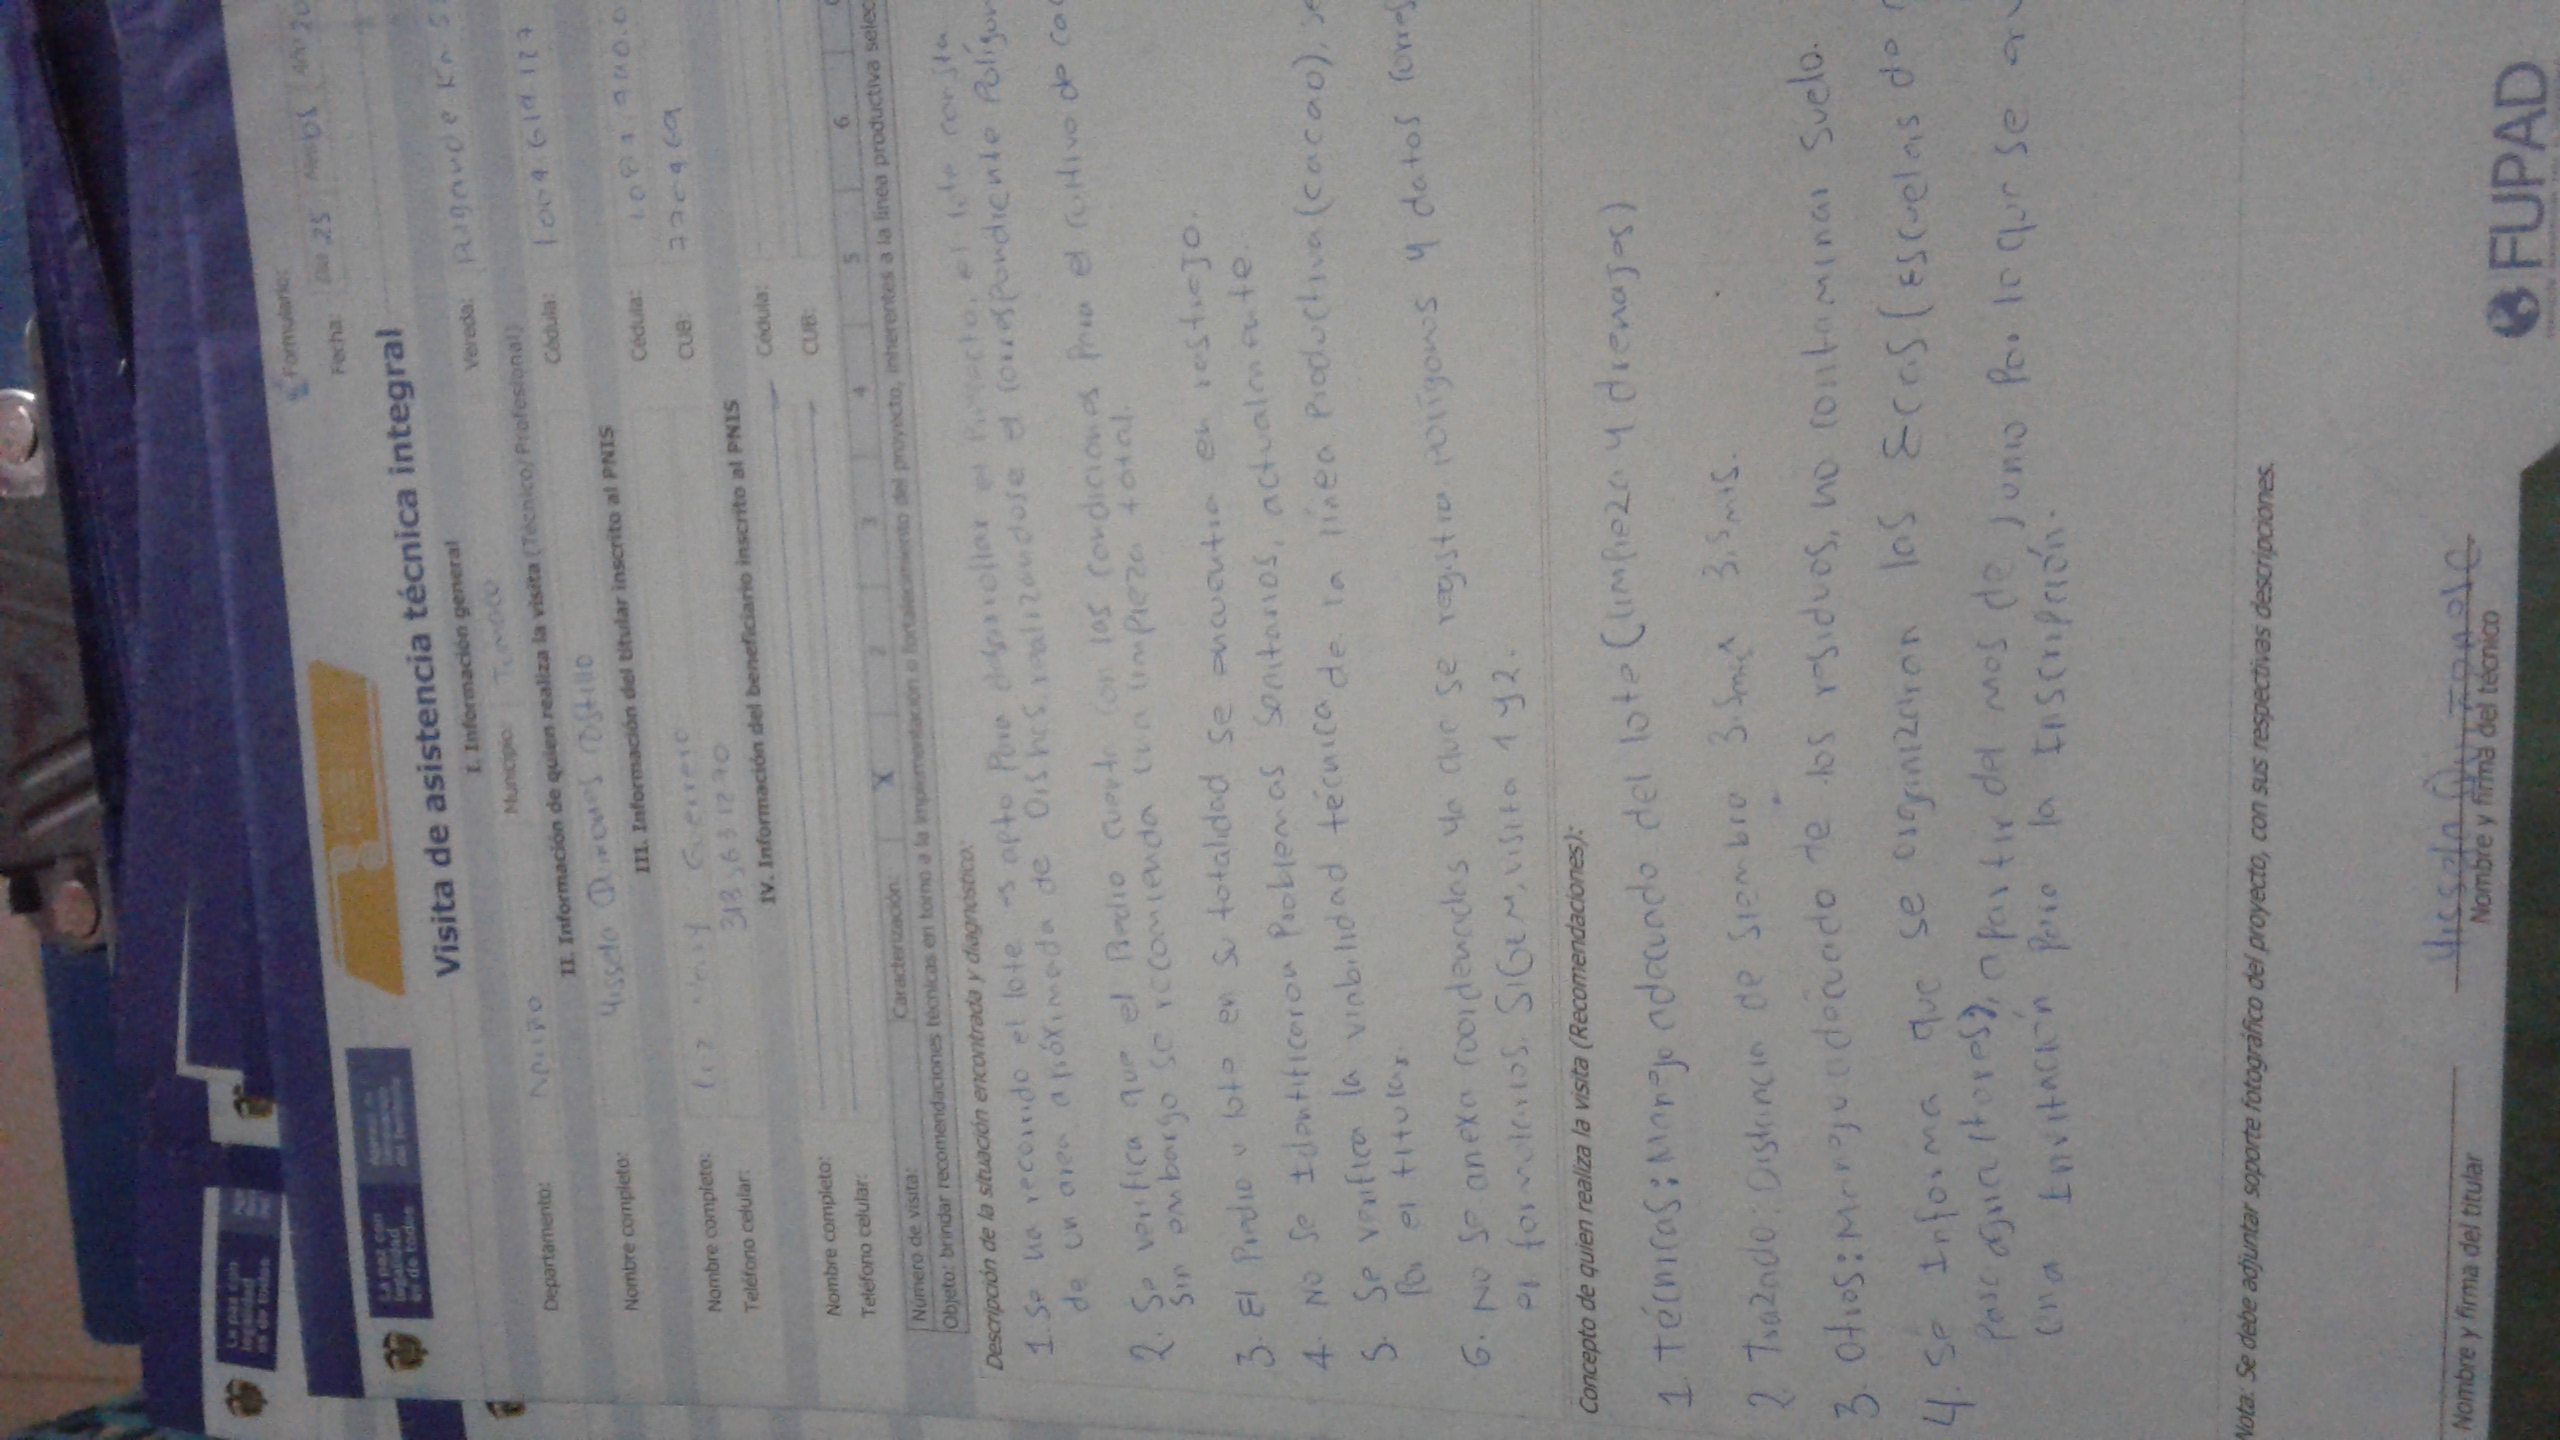 La paz con legalidad es de todos
Formulario:
Fecha: Día 25 Mes 05 Año 20
Visita de asistencia técnica integral
I. Información general
Departamento: Nariño Municipio: Tumaco Vereda:
II. Información de quien realiza la visita (Técnico/Profesional)
Nombre completo: Quiñones Castillo Cédula:
III. Información del titular inscrito al PNIS
Nombre completo: Luz Guerrero Cédula:
Teléfono celular: CUB:
IV. Información del beneficiario inscrito al PNIS
Nombre completo: Cédula:
Teléfono celular: CUB:
Número de visita: Caracterización: 1 X 2 3 4 5 6
Objeto: brindar recomendaciones técnicas en torno a la implementación o fortalecimiento del proyecto, inherentes a la línea productiva selec
Descripción de la situación encontrada y diagnóstico:
1. Se ha recorrido el lote es apto para desarrollar el proyecto, el lote consta
de un area apróximada de realizandose el correspondiente Polígon
2. Se verifica que el Predio cuenta con las condiciones Para el cultivo de cac
Sin embargo se recomienda una limpieza total.
3. El Predio o lote en su totalidad se encuentra en rastrojo.
4. No se Identificaron Problemas Sanitarios, actualmente.
5. Se verifica la viabilidad técnica de la línea Productiva (cacao), se
Por el titular.
6. No se anexa coordenadas ya que se registra polígonos y datos corres
el formularios. SIGEM, visita 1 y 2.
Concepto de quien realiza la visita (Recomendaciones):
1. Técnicas: Manejo adecuado del lote (limpieza y drenajes)
2. Trazado: Distancia de siembra 3.5mts x 3.5mts.
3. Otros: Manejo adecuado de los residuos, no contaminar Suelo.
4. Se Informa que se organizarian las Ecas (Escuelas de
Para agricultores), a partir del mes de Junio Por lo que se
una Invitación para la Inscripción.
Nota: Se debe adjuntar soporte fotográfico del proyecto, con sus respectivas descripciones.
Nombre y firma del titular
Nombre y firma del técnico
FUPAD